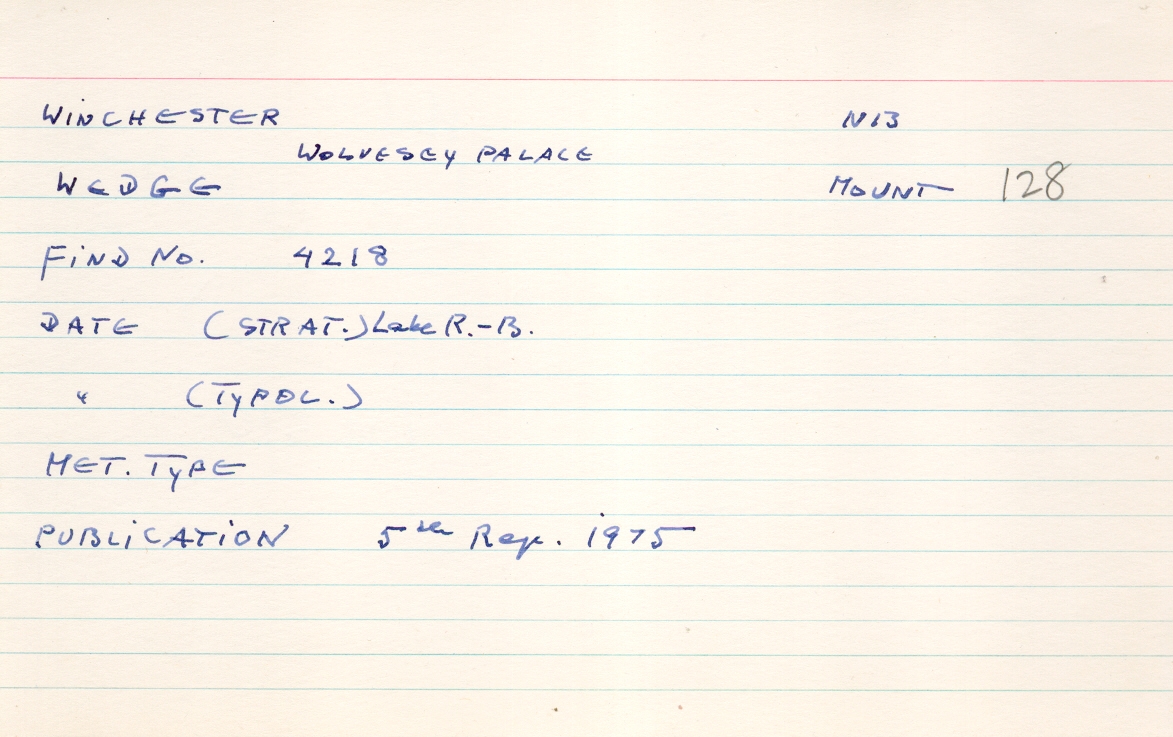 WINCHESTER N13
WOLVESEY PALACE
WEDGE MOUNT 128
FIND No. 4218
DATE (STRAT.) Late R.-B.
" (TYPOL.)
MET. TYPE
PUBLICATION 5th Rep. 1975